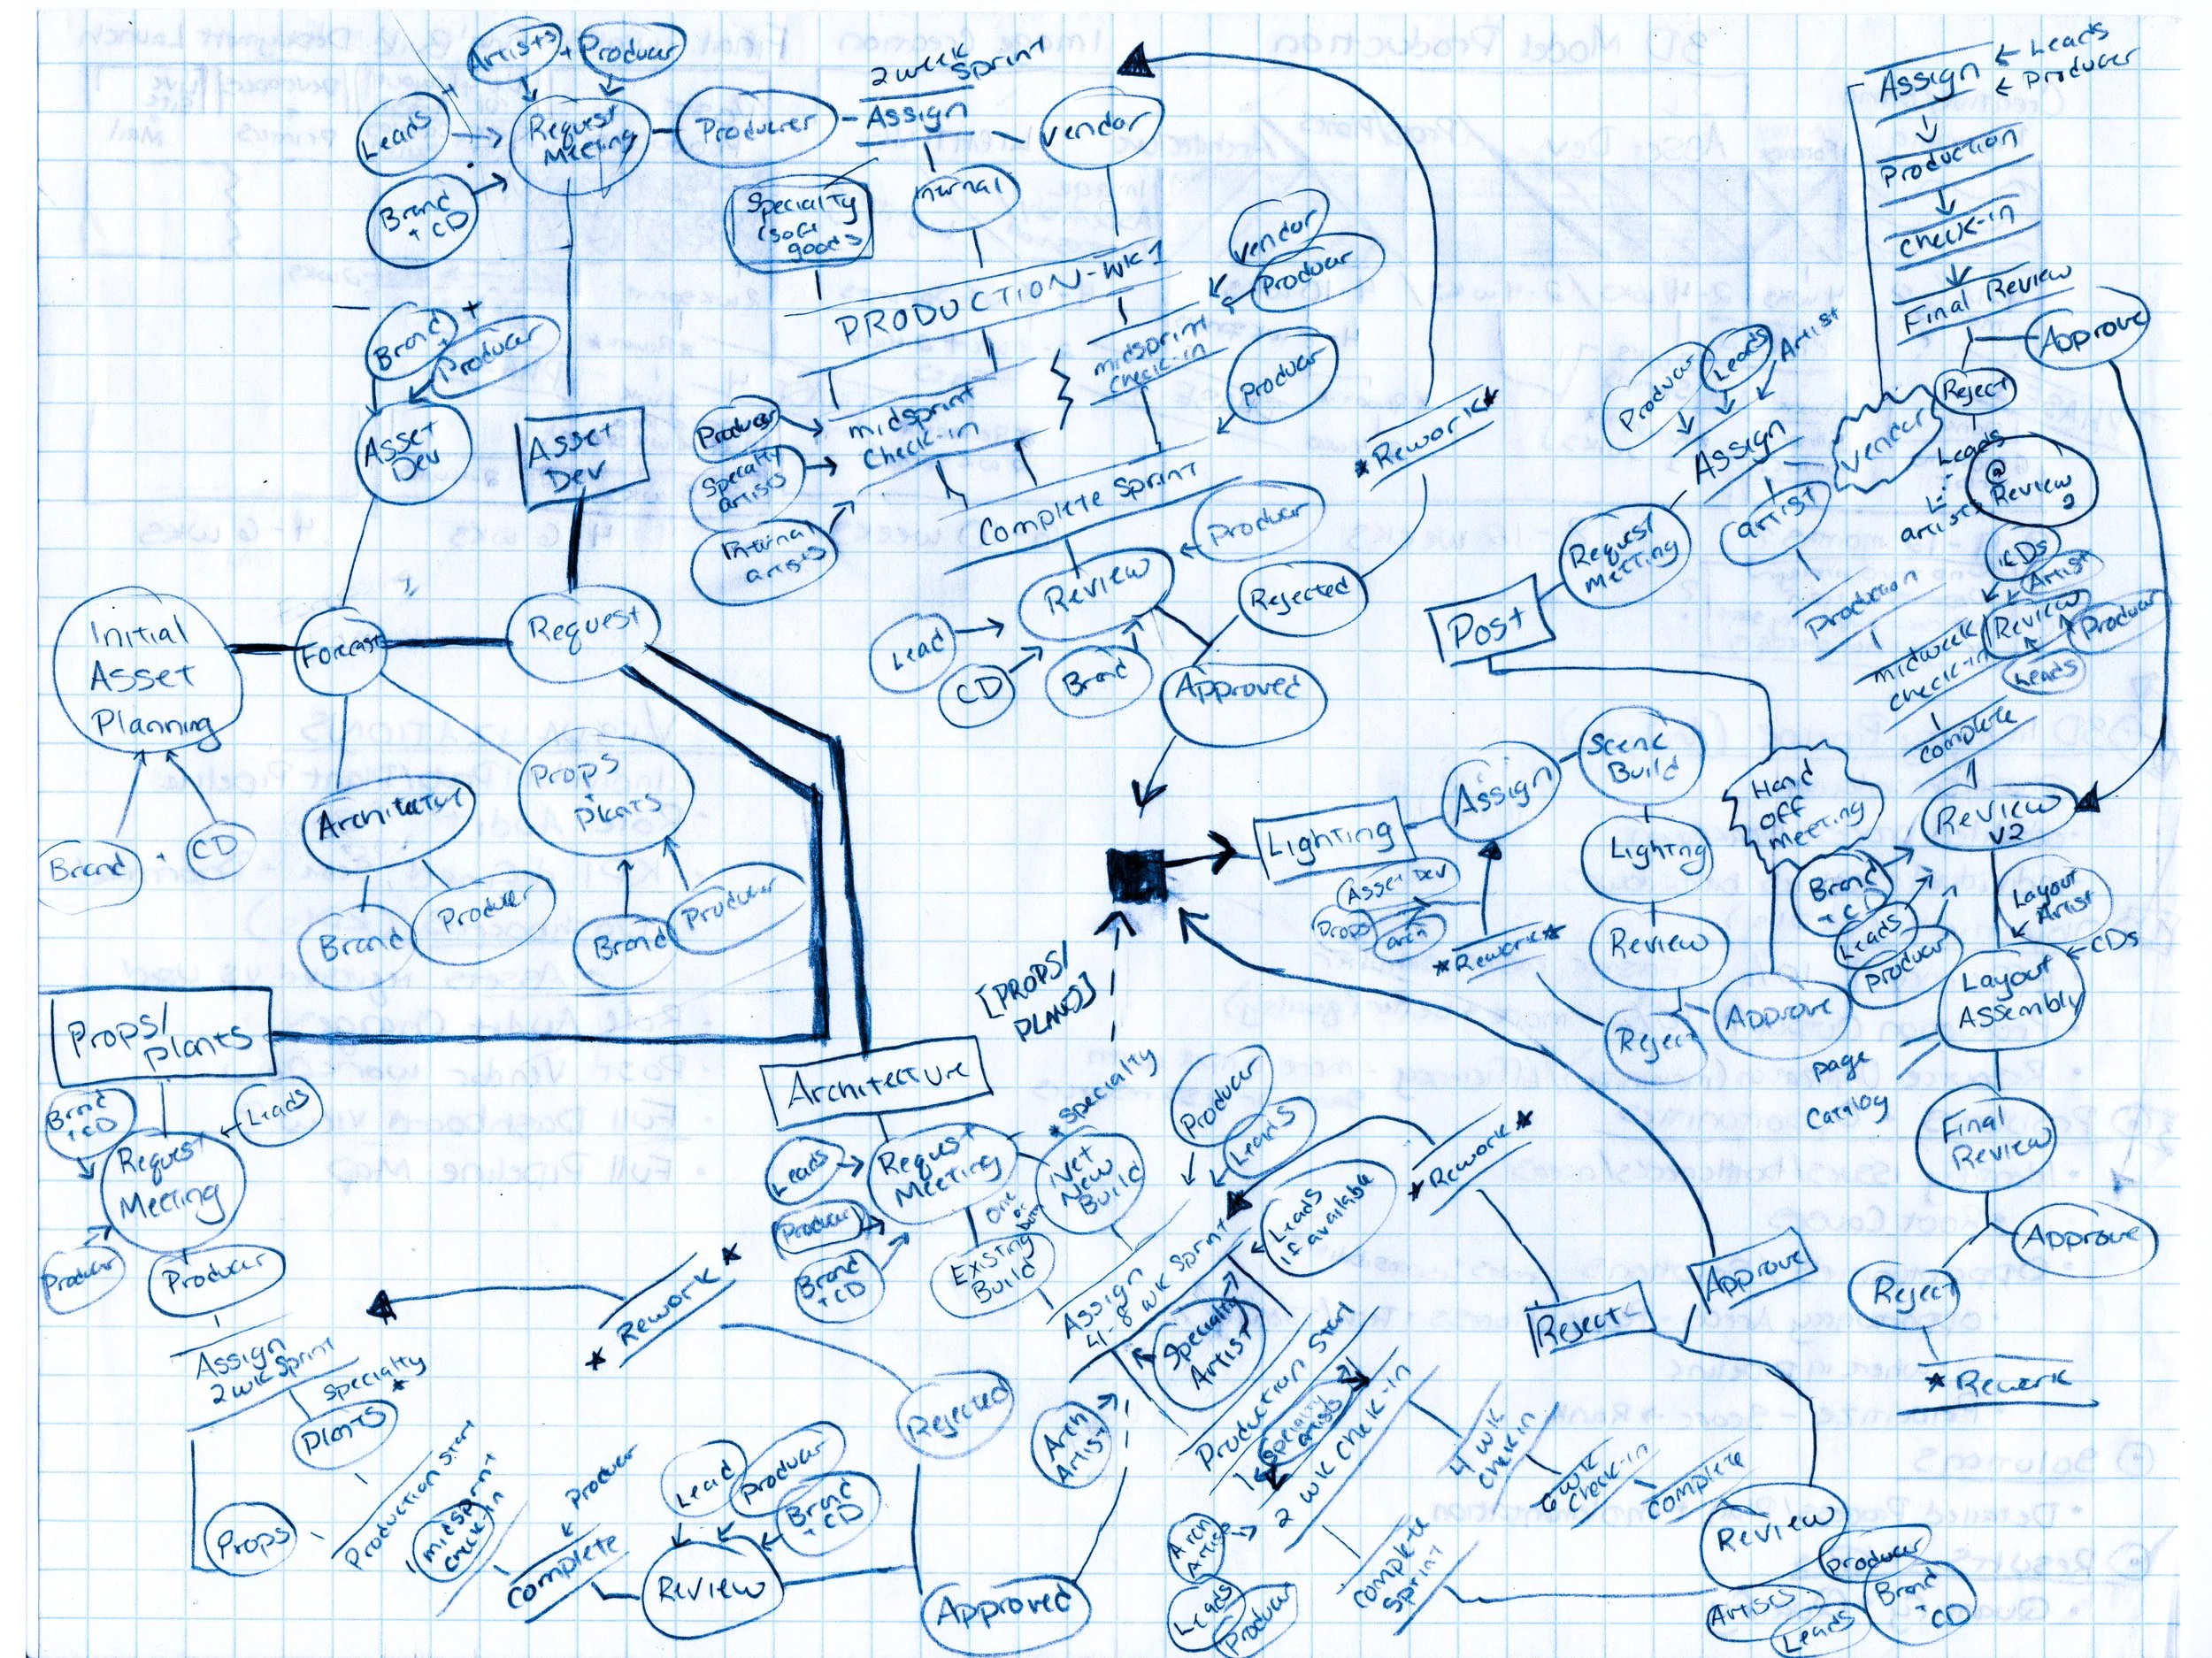 Artists
+
Producer
Leads
+
Request
Meeting
Brand
+ CD
Producer
2 week
Sprint
Assign
Vendor
Internal
Specialty
(soft
goods
PRODUCTION-WK1
Vendor
Producer
midsprint
check-in
Producer
Producer
Specialty
artists
Internal
artists
midsprint
check-in
Complete Sprint
Producer
Review
Lead
CD
Brand
Rejected
Approved
*Rework*
Brand
+
+
Producer
Asset
Dev
Asset
Dev
Initial
Asset
Planning
Forecast
Request
Brand
+
CD
Architecture
Brand
Producer
Props
+
Plants
Brand
Producer
Props/
Plants
Brand
+ CD
Leads
Request
Meeting
Producer
Producer
Assign
2 wk Sprint
Specialty
*
Plants
Props
Production Start
midsprint
check-in
Producer
Complete
Lead
Producer
Brand
+ CD
Review
Rejected
Approved
* Rework *
Architecture
Leads
Producer
Brand
+ CD
Request
Meeting
*Specialty
Net
New
Build
one
or
both
Existing
Build
Producer
Leads
Assign
4-8 wk Sprint
Leads
if available
Specialty
Artist
Arch
Artist
Production Start
Specialty
artists
2 wk check-in
Arch
Artist
Leads
Producer
4 wk
check in
6 wk
check-in
Complete
Complete
Sprint
Review
Producer
Artists
Leads
Brand
+
CD
Reject
Approve
*Rework*
[PROPS/
PLANTS]
Lighting
Assign
Scene
Build
Lighting
Review
Reject
Approve
*Rework*
Asset Dev
Props
arch
Hand
off
Meeting
Post
Request
Meeting
Producer
Leads
Artist
Assign
Vendor
artist
Production
midweek
check-in
Review
CDs
Artist
Producer
Leads
Complete
Review
V2
Brand
+ CD
Leads
Producer
Layout
Artist
CDs
Layout
Assembly
page
Catalog
Final
Review
Approve
Reject
* Rework
Assign
Leads
Producer
Production
check-in
Final Review
Approve
Reject
Leads
artists
@
Review
2